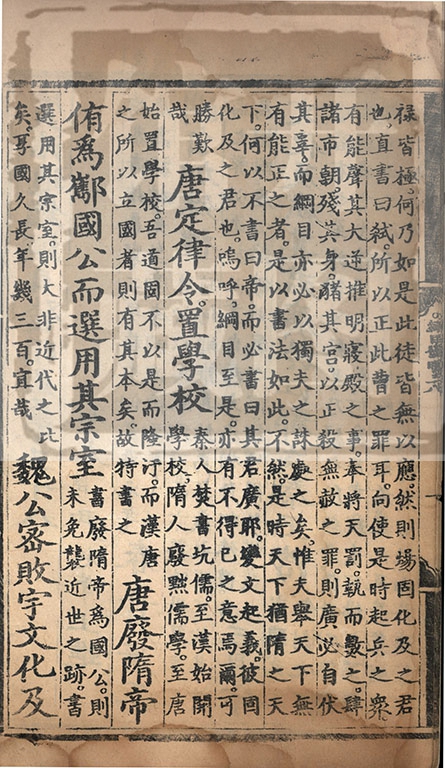 禄皆極何乃如是此徒皆無以應然則煬固化及之君
也直書曰弑所以正此曹之罪耳向使是時起兵之衆
有能聲其大逆推明寢殿之事奉將天罰執而數之肆
諸市朝殘其身瀦其宮以正殺無赦之罪則廣必自伏
其辜而綱目亦必以獨夫之誅處之矣惟夫舉天下無
有能正之者是以書法如此不然是時天下猶隋之天
下何以不書曰帝而必書曰其君廣耶變文起義彼固
化及之君也嗚呼綱目至是亦有不得已之意焉爾可
勝歎
哉
唐定律令置學校
秦人焚書坑儒至漢始開
學校隋人廢黜儒學至唐
始置學校吾道固不以是而隆汙而漢唐
之所以立國者則有其本矣故特書之
唐廢隋帝
侑爲酅國公而選用其宗室
書廢隋帝爲國公則
未免襲近世之跡書
選用其宗室則大非近代之比
矣享國久長年幾三百宜哉
魏公密敗宇文化及